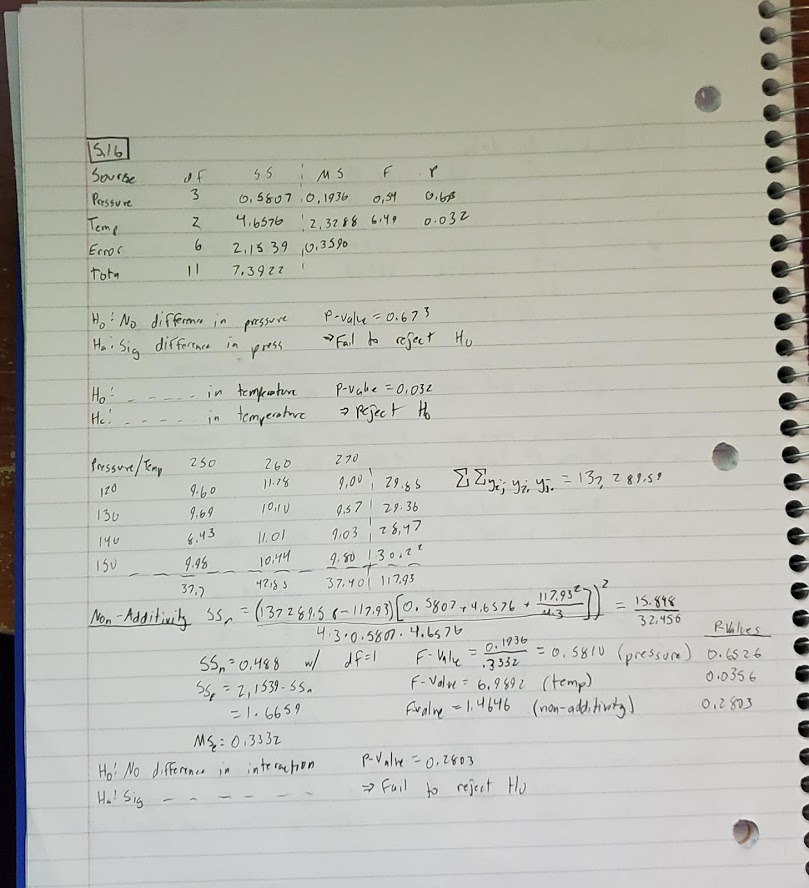 5.16
Source df SS MS F P
Pressure 3 0.5807 0.1936 0.54 0.673
Temp 2 4.6576 2.3288 6.49 0.032
Error 6 2.1539 0.3590
Tota 11 7.3922
H₀: No difference in pressure P-value = 0.673
Ha: Sig difference in press ⇒ Fail to reject H₀
H₀: - - - - - in temperature P-value = 0.032
Ha: - - - - in temperature ⇒ Reject H₀
Pressure/Temp 250 260 270
120 9.60 11.28 9.00 29.88
130 9.69 10.10 9.57 29.36
140 8.43 11.01 9.03 28.47
150 9.98 10.44 9.80 30.22
37.7 42.83 37.40 117.93
ΣΣyij yi. y.j = 137,289.59
Non-Additivity SSn = (137289.58-(117.93)[0.5807+4.6576+117.93²/4.3])² / 4.3·0.5807·4.6576 = 15.898/32.456
SSn = 0.488 w/ df=1 F-Value = 0.1936/.3332 = 0.5810 (pressure)
SSe = 2.1539-SSn F-Value = 6.9892 (temp)
= 1.6659 Fvalue = 1.4646 (non-additivity)
MSe = 0.3332
P Values
0.6526
0.0356
0.2803
H₀: No difference in interaction P-Value = 0.2803
Ha: Sig - - - - - - ⇒ Fail to reject H₀